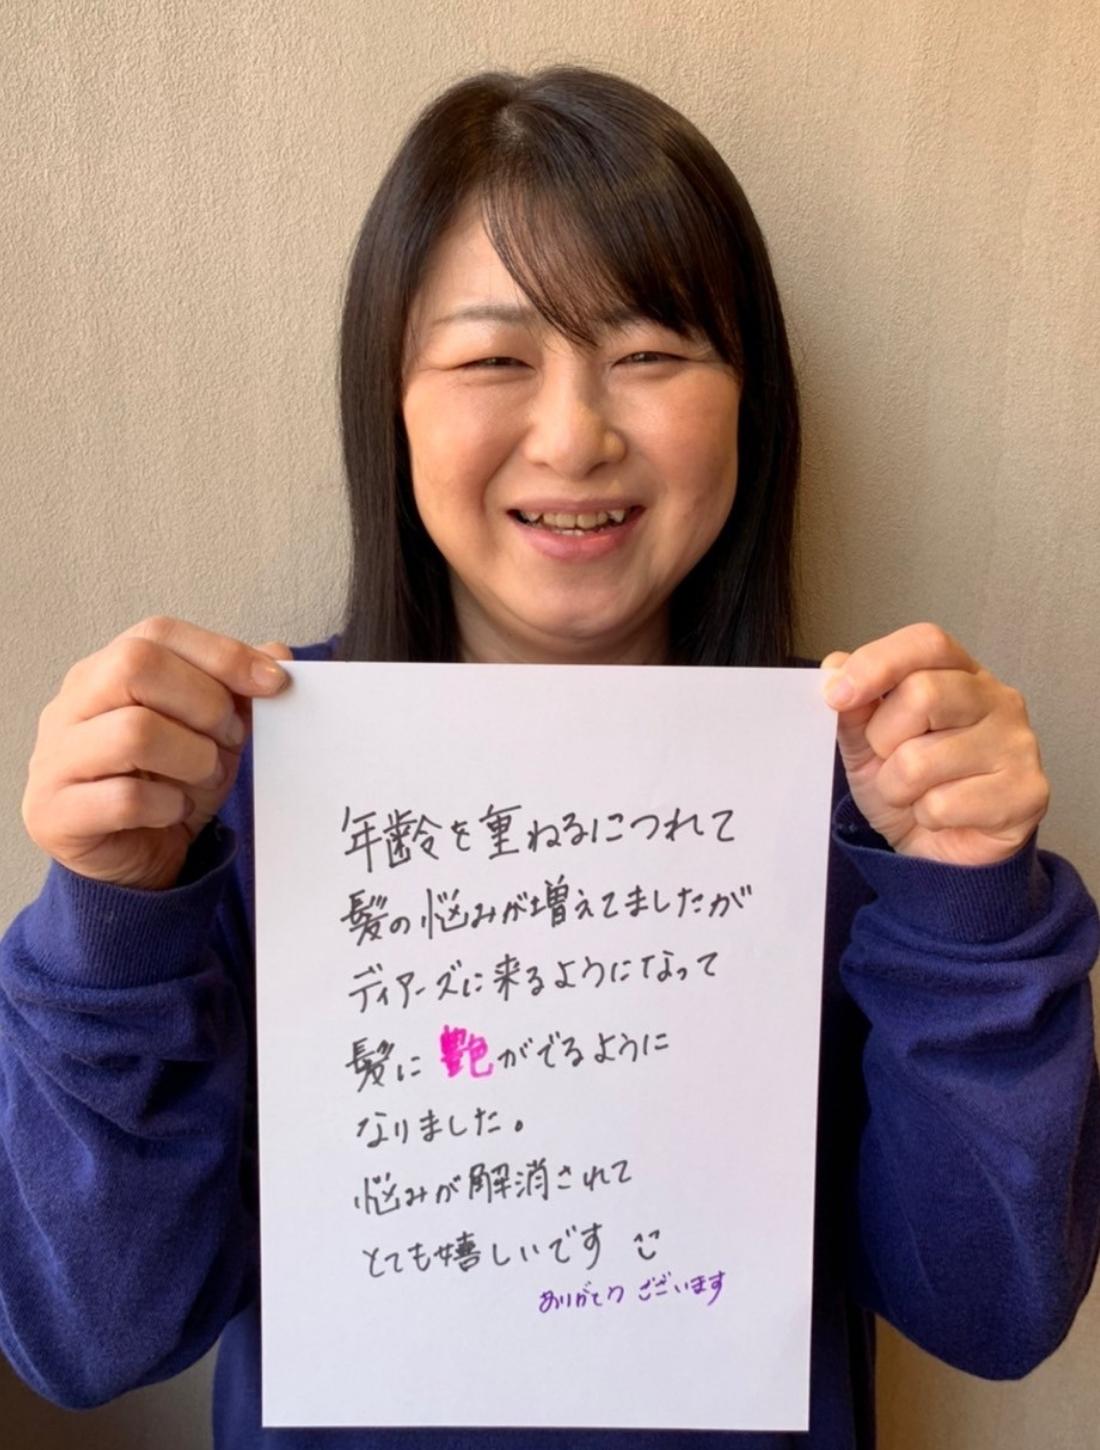 年齢を重ねるにつれて
髪の悩みが増えてましたが
ディアーズに来るようになって
髪に艶がでるように
なりました。
悩みが解消されて
とても嬉しいです
ありがとうございます